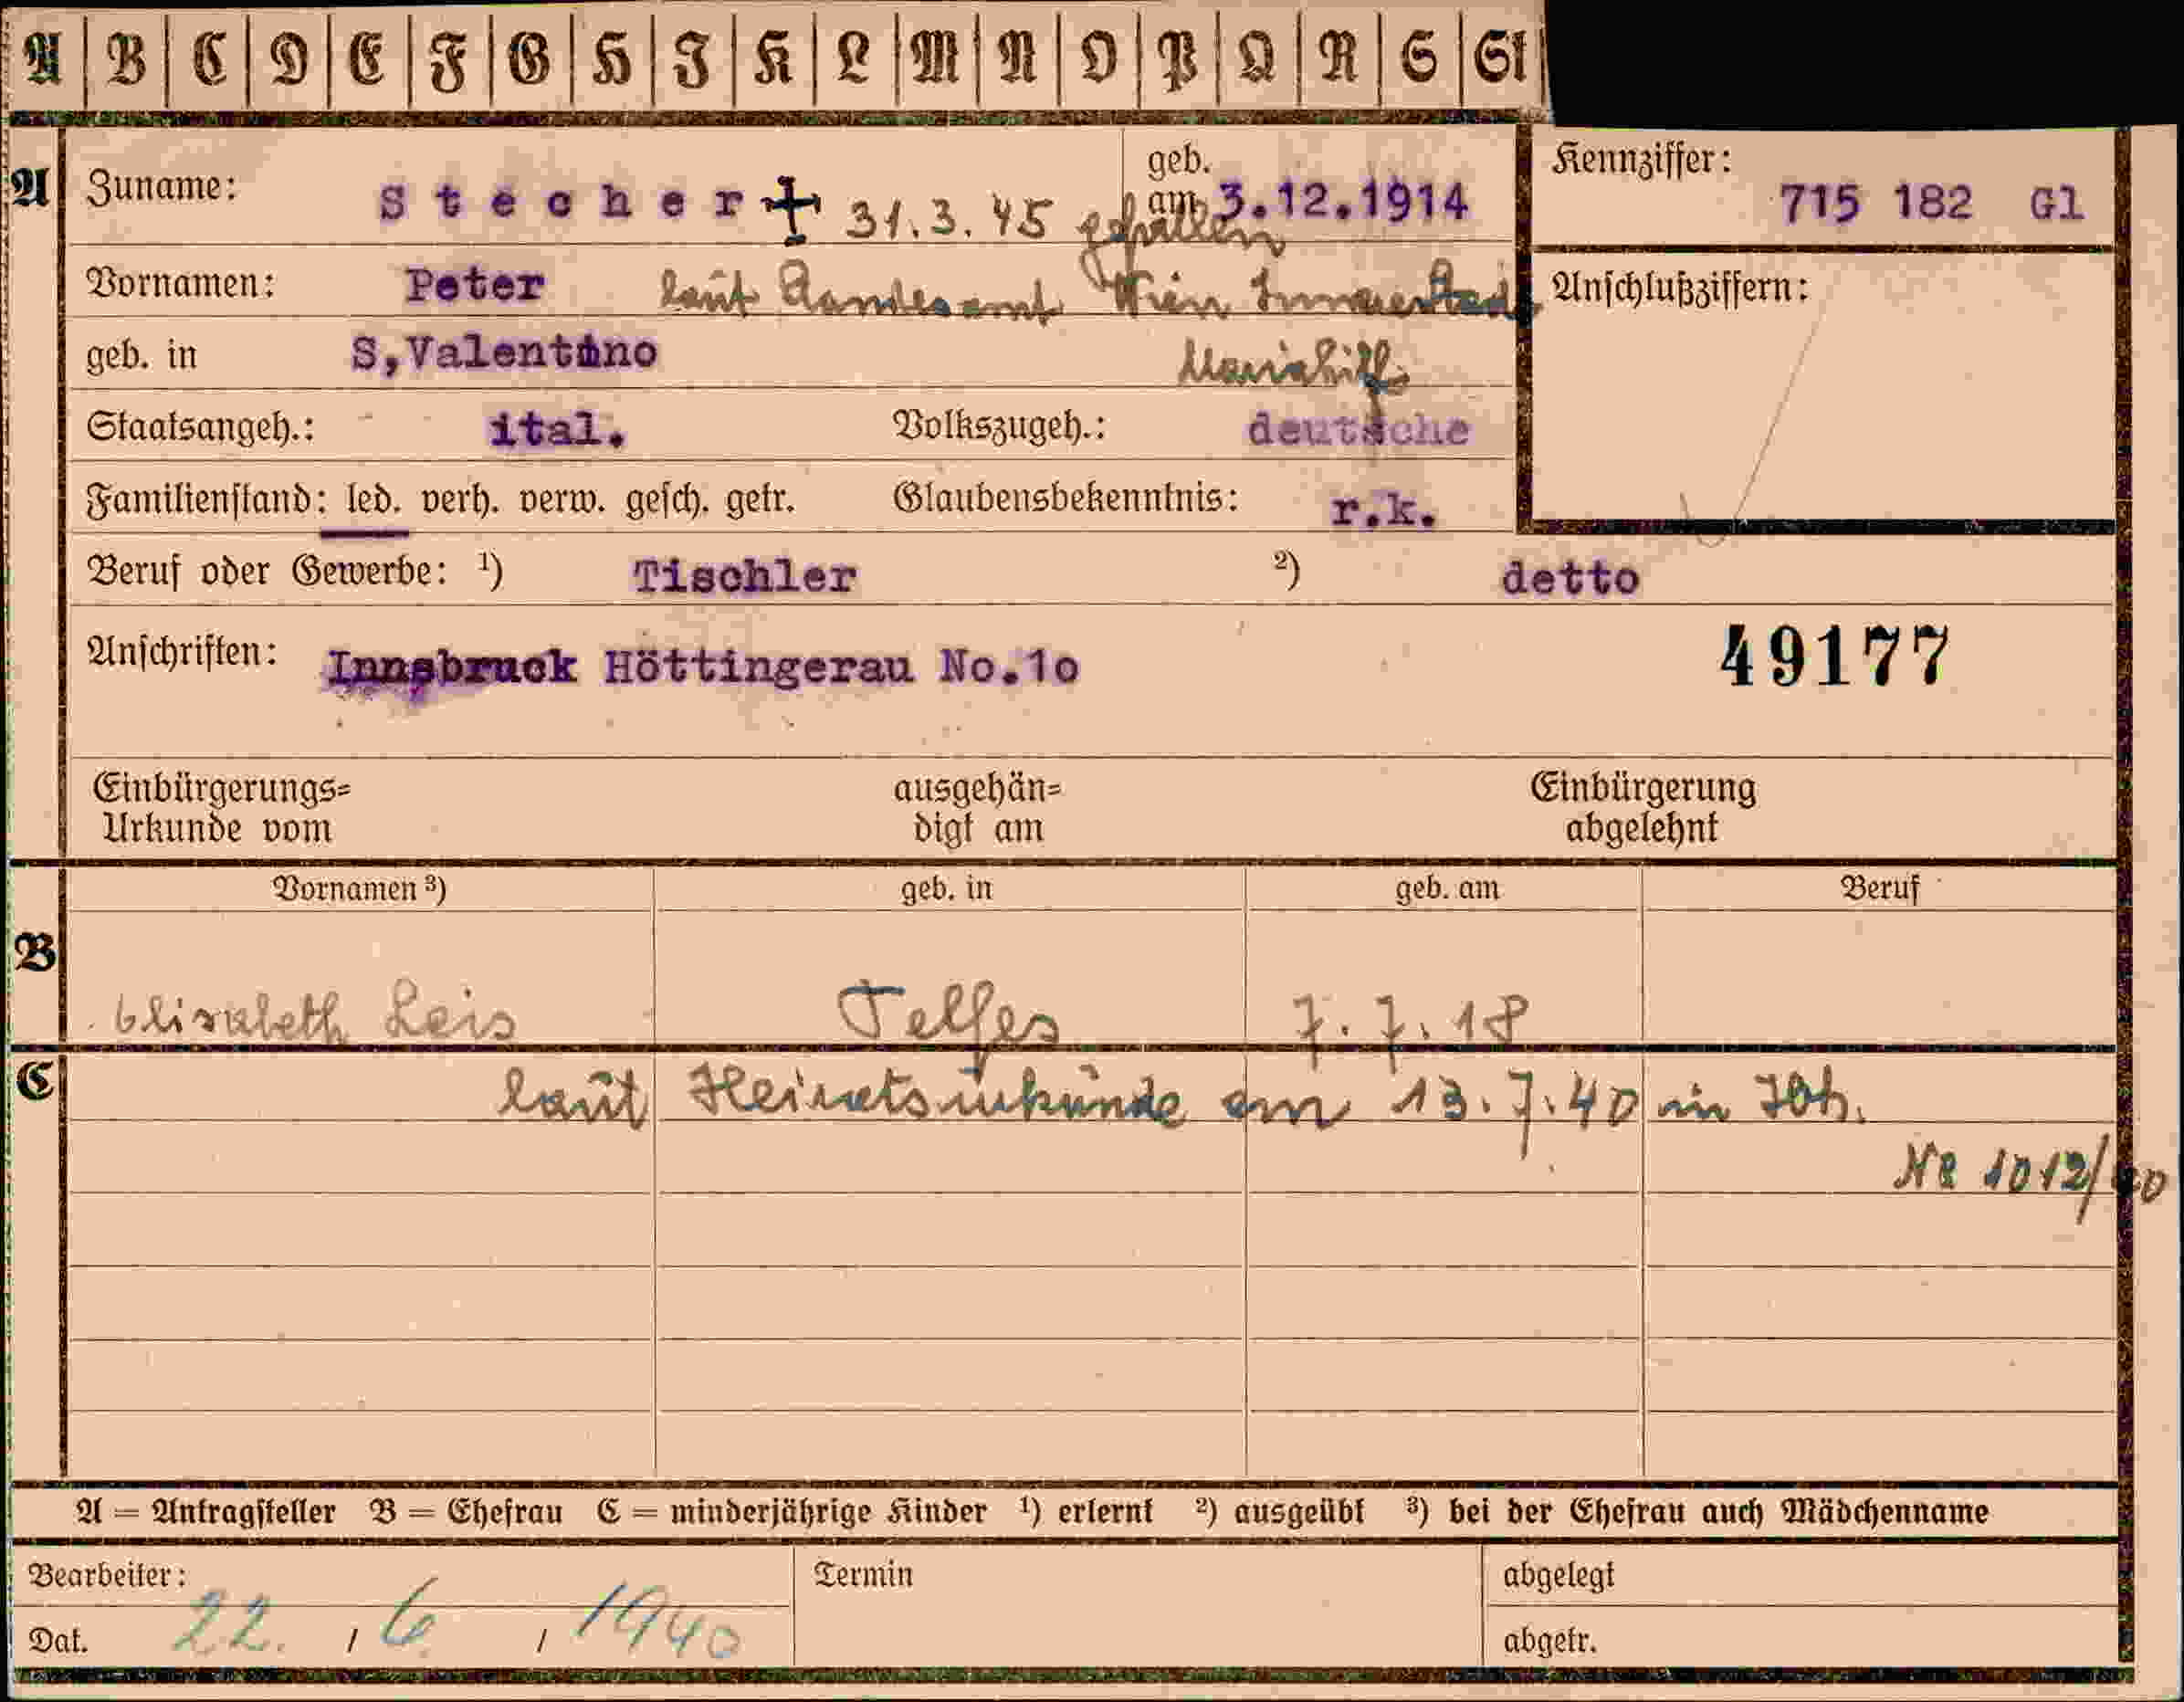 A B C D E F G H I K L M N O P Q R S St
A Zuname: Stecher + 31.3.45 gefallen geb. am 3.12.1914
Kennziffer: 715 182 Gl
Vornamen: Peter laut Standesamt Wien Innerstadt
Anschlußziffern:
geb. in S,Valentino Mariahilf
Staatsangeh.: ital. Volkszugeh.: deutsche
Familienstand: led. verh. verw. gesch. getr. Glaubensbekenntnis: r.k.
Beruf oder Gewerbe: 1) Tischler 2) detto
Anschriften: Innsbruck Höttingerau No.10
49177
Einbürgerungs= ausgehän= Einbürgerung
Urkunde vom digt am abgelehnt
Vornamen 3) geb. in geb. am Beruf
B
Elisabeth Leis Telfes 7.7.18
C laut Heiratsurkunde am 13.7.40 in Ibk.
Nr 1012/40
A = Antragsteller B = Ehefrau C = minderjährige Kinder 1) erlernt 2) ausgeübt 3) bei der Ehefrau auch Mädchenname
Bearbeiter: Termin abgelegt
Dat. 22. / 6 / 1940 abgetr.